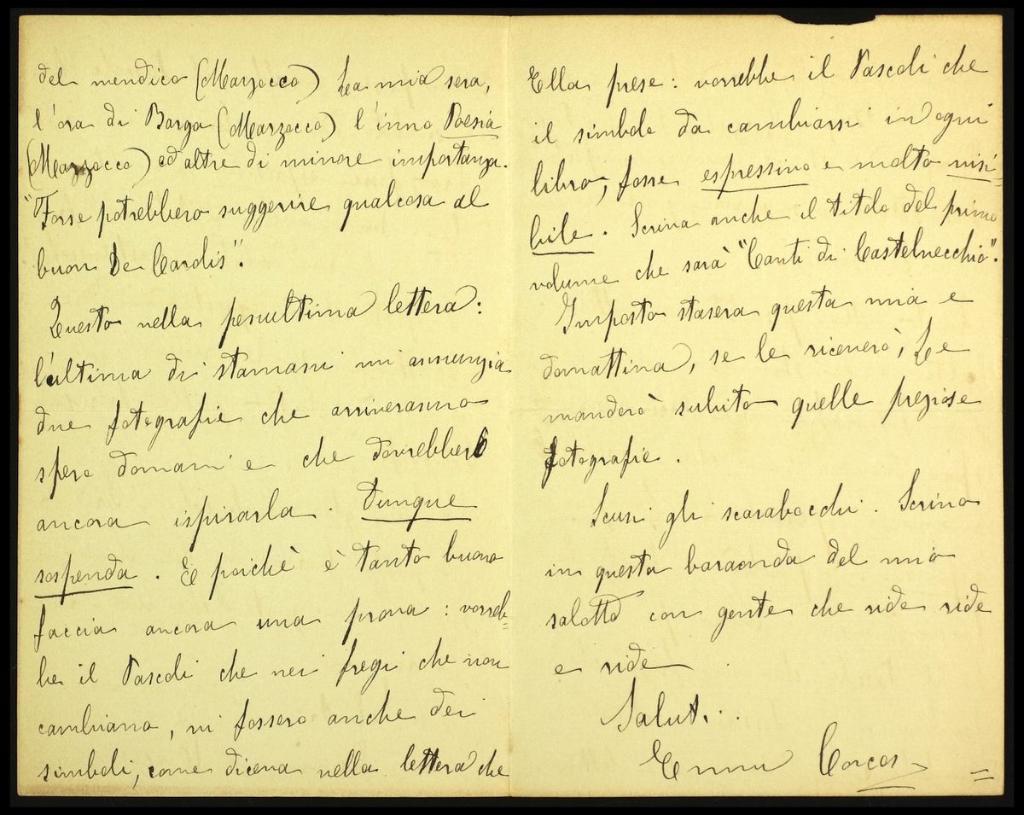 del mendico (Marzocco) La mia sera,
l'ora di Barga (Marzocco) l'inno Poesia
(Marzocco) ed altre di minore importanza.
"Forse potrebbero suggerire qualcosa al
buon De Carolis".
Questo nella penultima lettera:
l'ultima di stamani mi annunzia
due fotografie che arriveranno
spero domani e che dovrebbero
ancora ispirarla. Dunque
sospenda. E poichè è tanto buono
faccia ancora una prova: vorreb=
be il Pascoli che nei fregi che non
cambiano, vi fossero anche dei
simboli, come diceva nella lettera che
Ella prese: vorrebbe il Pascoli che
il simbolo da cambiarsi in ogni
libro, fosse espressivo e molto visi=
bile. Scriva anche il titolo del primo
volume che sarà "Canti di Castelvecchio".
Imposto stasera questa mia e
domattina, se le riceverò, Le
manderò subito quelle preziose
fotografie.
Scusi gli scarabocchi. Scrivo
in questa baraonda del mio
salotto con gente che ride ride
e ride
Saluti..
Emma Corcos